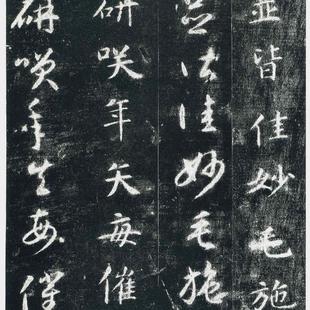 並皆佳妙毛施
並皆佳妙毛施
研咲年矢每催
研咲年矢每催